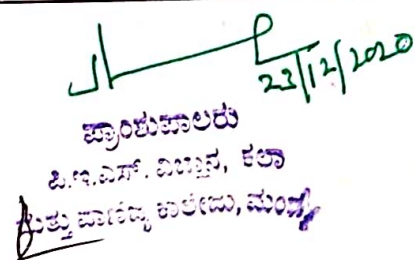 23/12/2020
ಪ್ರಾಂಶುಪಾಲರು
ಪಿ.ಇ.ಎಸ್. ವಿಜ್ಞಾನ, ಕಲಾ
ಮತ್ತು ವಾಣಿಜ್ಯ ಕಾಲೇಜು, ಮಂಡ್ಯ